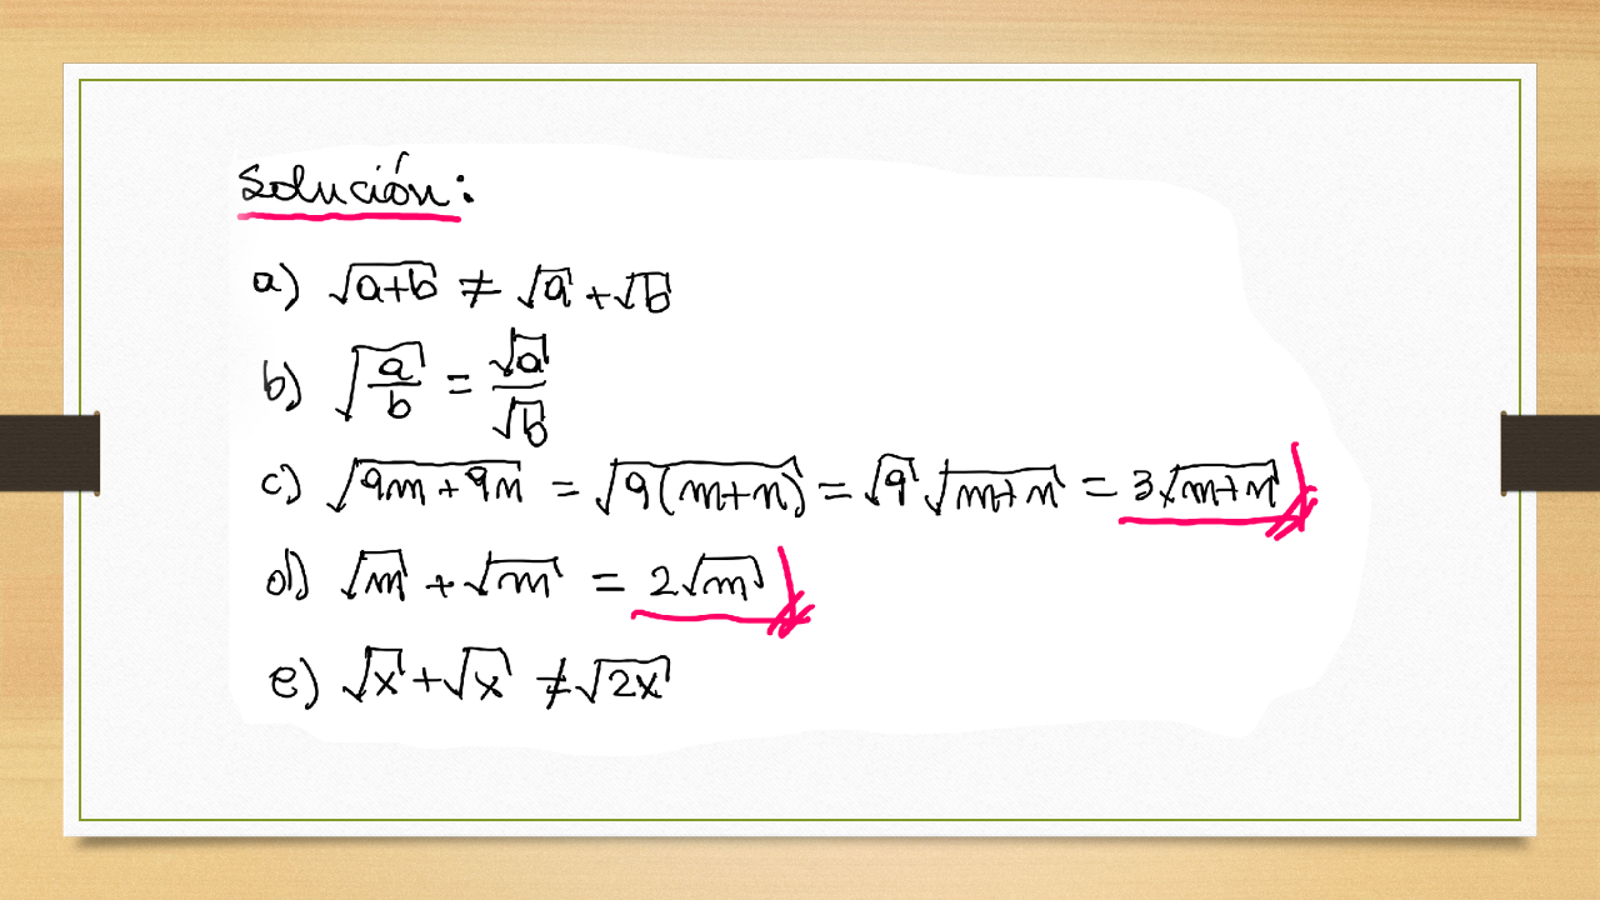 Solución:
a) √(a+b) ≠ √a + √b
b) √(a/b) = √a/√b
c) √(9m+9n) = √(9(m+n)) = √9 √(m+n) = 3√(m+n)
d) √m + √m = 2√m
e) √x + √x ≠ √(2x)